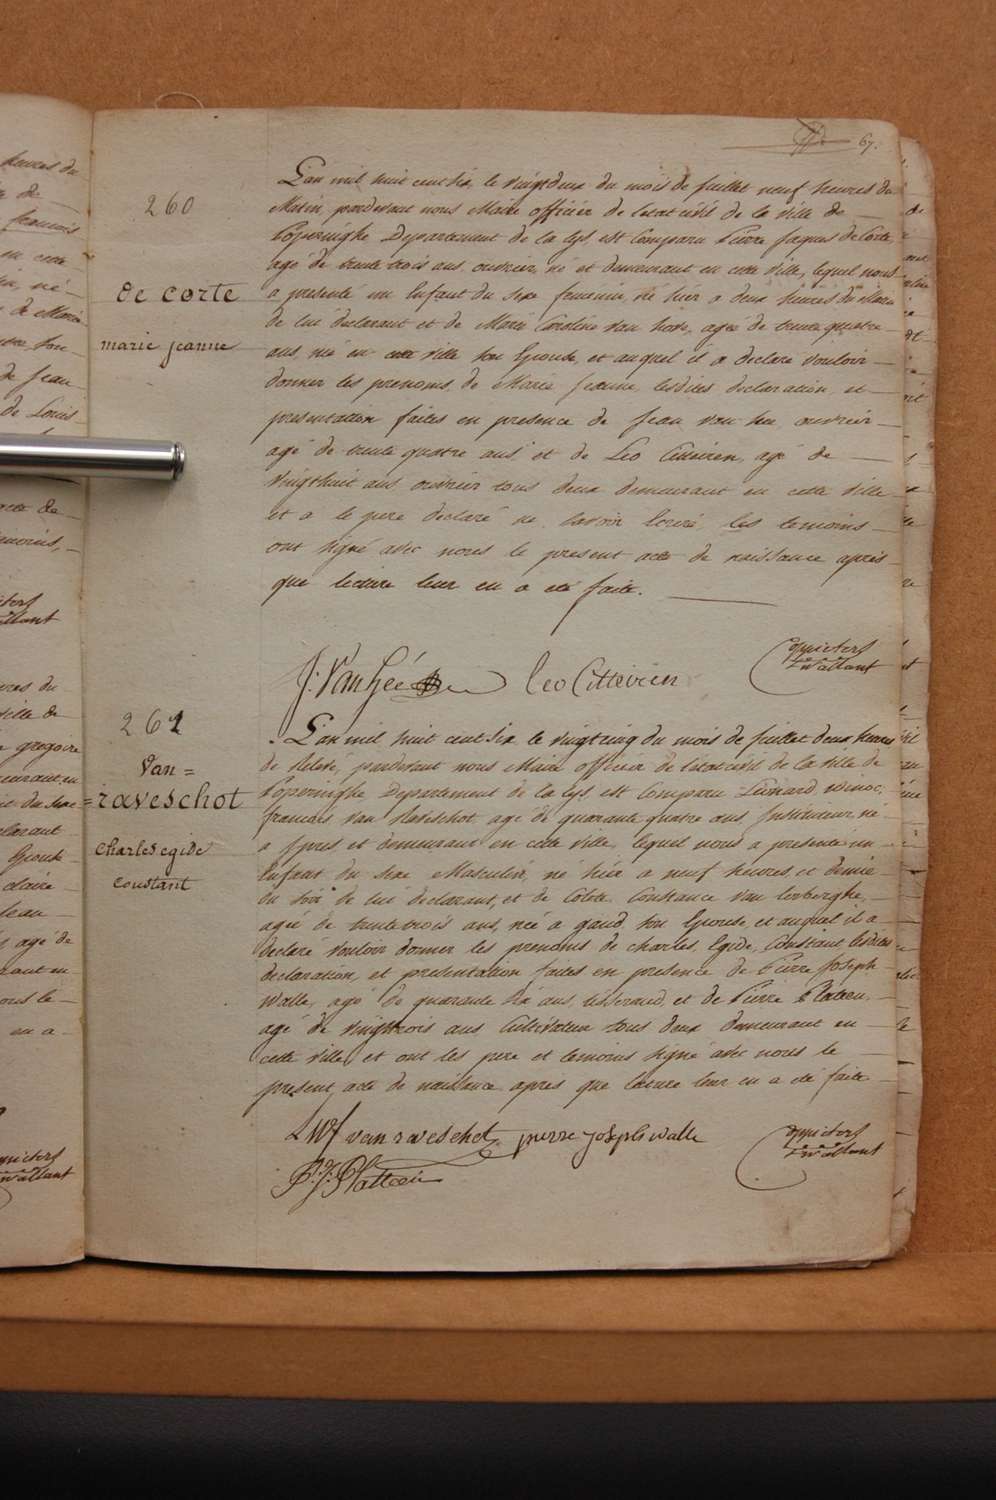 67.
260
de corte
marie jeanne
L'an mil huit cent six, le vingtdeux du mois de juillet neuf heures du
Matin, pardevant nous Maire officier de l'etat civil de la ville de
Poperinghe Departement de la Lys, est Comparu Pierre Jaques de Corte,
agé de trente trois ans, ouvrier, né et demeurant en cette ville, lequel nous
a presenté un Enfant du sexe femenin, né hier a deux heures du Matin
de lui declarant et de Marie Caroline van hove, agée de trente quatre
ans, née en cette ville son Epouse, et auquel il a declaré vouloir
donner les prenoms de Marie Jeanne, lesdites declaration, et
presentation faites en presence de Jean van hee, ouvrier
agé de trente quatre ans, et de Leo Citteiren, agé de
vingthuit ans, ouvrier tous deux demeurant en cette ville
et a le pere declaré ne savoir Ecrire, les temoins
ont signé avec nous le present acte de naissance après
que lecture leur en a eté faite.
J. Van Heé Leo Citteiren
261
Van =
= raveschot
Charles egide
constant
L'an mil huit cent six, le vingtcinq du mois de juillet deux heures
de Relevé, pardevant nous Maire officier de l'etat civil de la ville de
Poperinghe Departement de la Lys, est Comparu Leonard, winoc,
francois, van Raveschot agé de quarante quatre ans, Instituteur né
a Ypres et demeurant en cette ville, lequel nous a presenté un
Enfant du sexe Masculin, né hier a neuf heures, et demie
du soir de lui declarant, et de Colette Constance van lerberghe,
agée de trente trois ans, née a gand, son Epouse, et auquel il a
declaré vouloir donner les prenoms de charles, Egide, Constant, lesdites
declaration, et presentation faites en presence de Pierre Joseph
Walle, agé de quarante six ans, tisserand, et de Pierre Platteeu,
agé de vingttrois ans Cultivateur tous deux demeurant en
cette ville, et ont les pere et temoins signé avec nous le
present acte de naissance après que lecture leur en a eté faite
LWf van raveschot pierre joseph walle
P. J. Platteeu